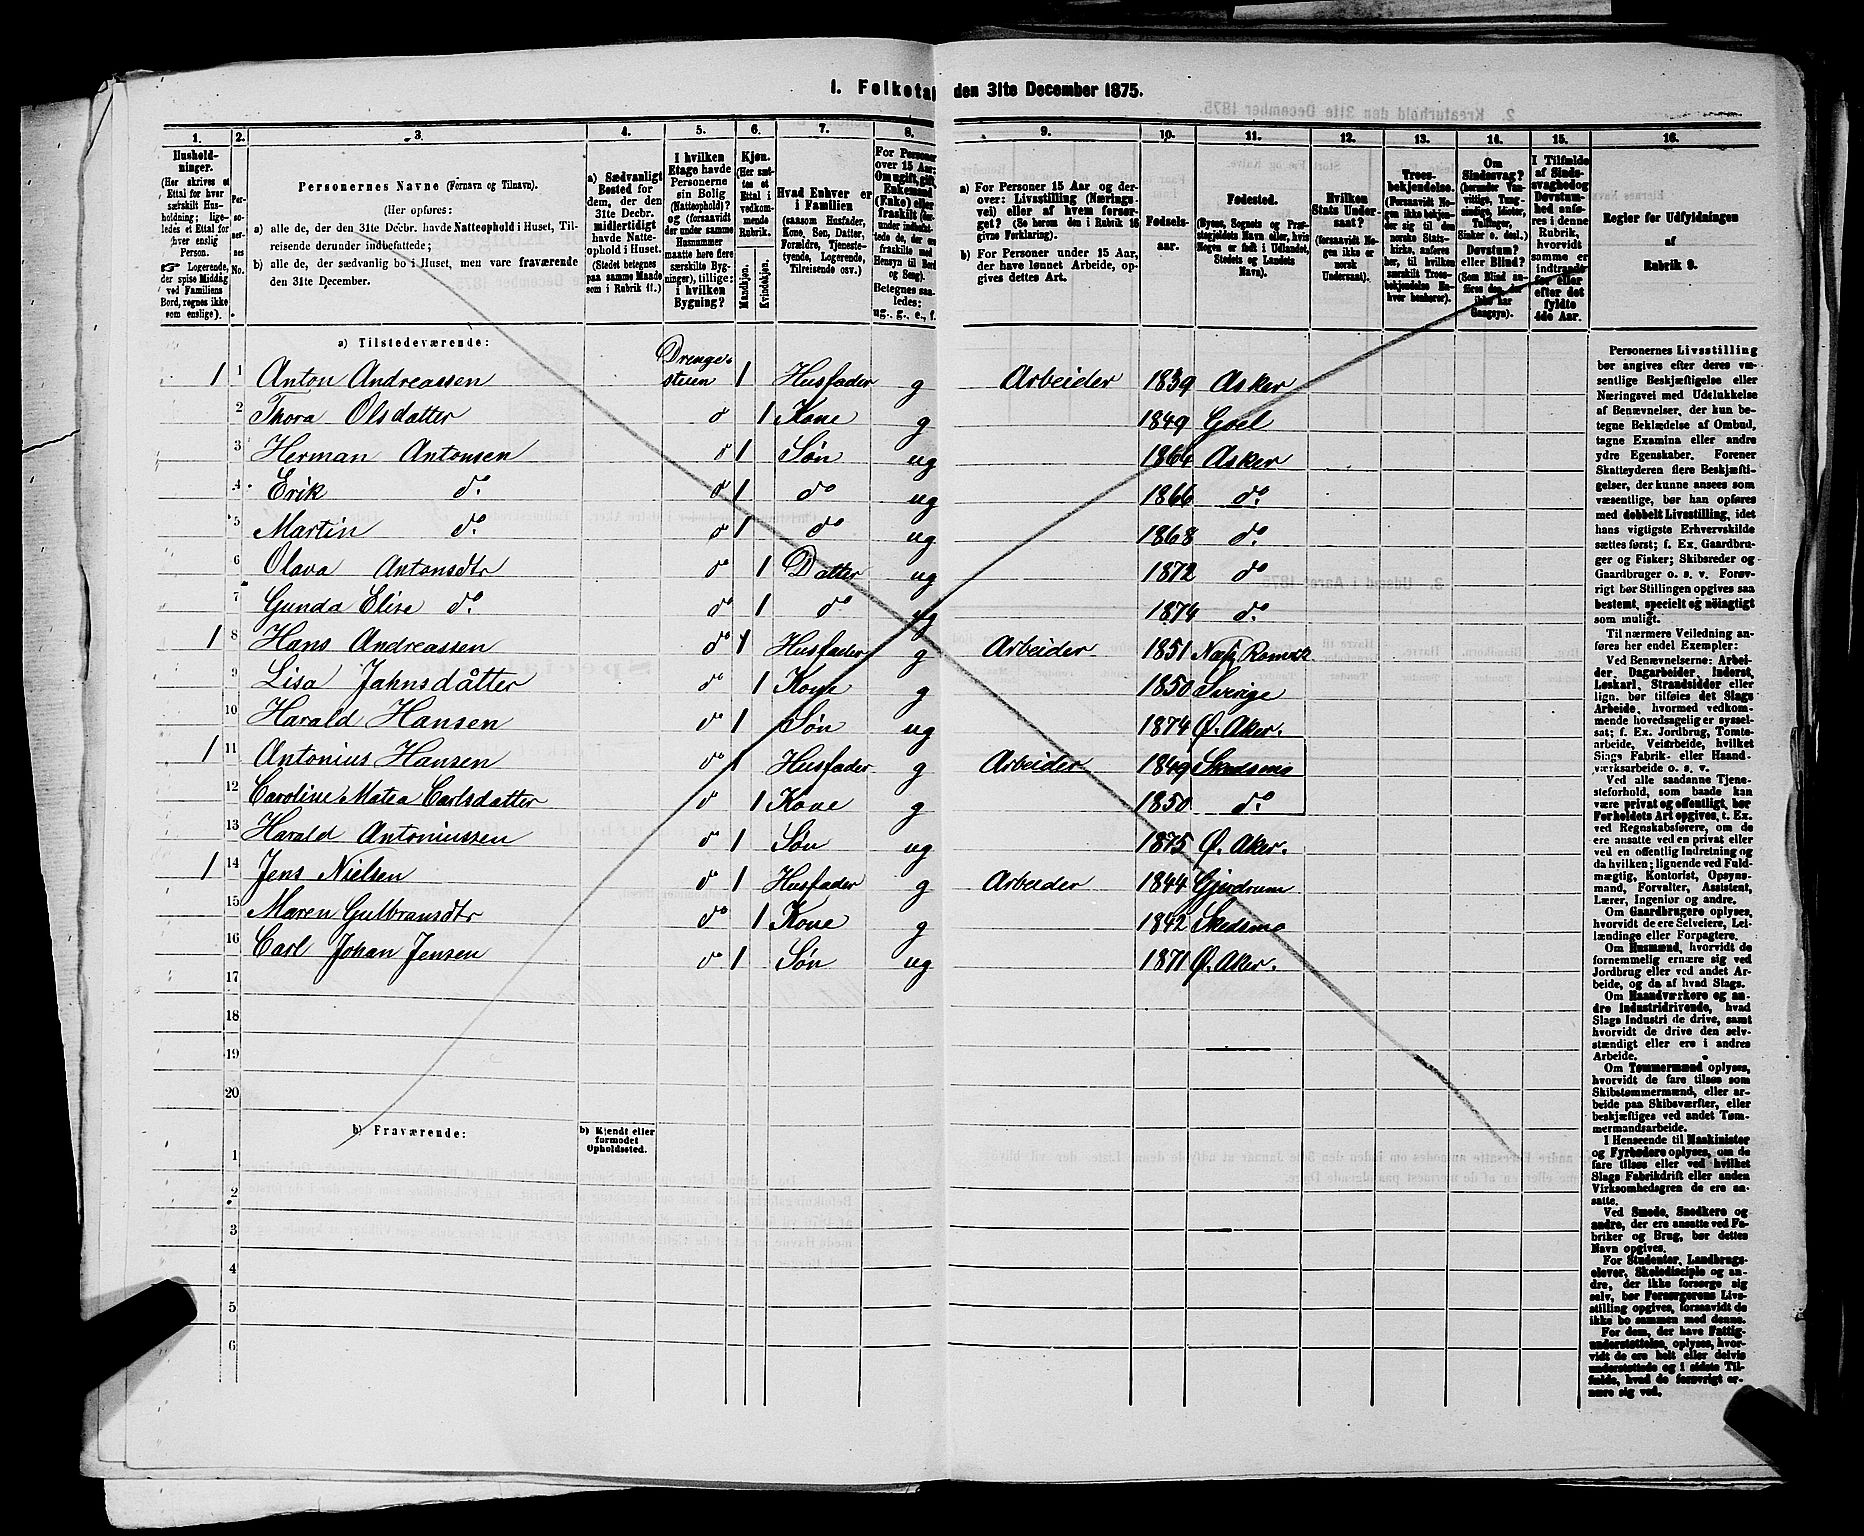 1. Folketal den 31te December 1875.
1. 2. 3. 4. 5. 6. 7. 8. 9. 10. 11. 12. 13. 14. 15. 16.
Hushold-
ninger.
(Her skrives et
Ettal for hver
særskilt Hus-
holdning; lige-
ledes et Ettal for
hver enslig
Person.
☞ Logerende,
der spise Middag
ved Familiens
Bord, regnes ikke
som enslige).
Per-
so-
ner-
nes
No.
Personernes Navne (Fornavn og Tilnavn).
(Her opføres:
a) alle de, der den 31te Decbr. havde Natteophold i Huset, Til-
reisende derunder indbefattede;
b) alle de, der sædvanlig bo i Huset, men vare fraværende
den 31te December.
a) Sædvanligt
Bosted for
dem, der den
31te Decbr.
midlertidigt
havde Natte-
ophold i Huset.
(Stedet betegnes
paa samme Maade
som i Rubrik 11.)
I hvilken
Etage havde
Personerne
sin Bolig
(Natteophold)?
og (forsaavidt
der under samme
Husnummer
maatte høre flere
særskilte Byg-
ninger), tillige:
i hvilken
Bygning?
Kjøn.
(Her sæt-
tes et
Ettal i
vedkom-
mende
Rubrik.
Mandkjøn.
Kvindekjøn.
Hvad Enhver er
i Familien
(saasom Husfader,
Kone, Søn, Datter,
Forældre, Tjeneste-
tyende, Logerende,
Tilreisende osv.)
For Personer
over 15 Aar:
Om ugift, gift,
Enkemand
(Enke) eller
fraskilt
Betegnes saa-
ledes:
ug., g., e., f.
a) For Personer 15 Aar og der-
over: Livsstilling (Nærings-
vei) eller af hvem forsør-
get? (Se herom den i Rubrik 16
givne Forklaring).
b) For Personer under 15 Aar,
der have lønnet Arbeide, op-
gives dettes Art.
Fødsels-
aar.
Fødested.
(Byens, Sognets og Præ-
stegjeldets Navn eller, hvis
Nogen er født i Udlandet,
Stedets og Landets
Navn).
Hvilken
Stats Under-
saat?
(forsaavidt No-
gen ikke er
norsk
Undersaat).
Troes-
bekjendelse.
(Forsaavidt No-
gen ikke bekjen-
der sig til den
norske Stats-
kirke, anføres
her, til hvilken
særskilt Troes-
bekjendelse En-
hver henhører).
Om
Sindssvag?
(herunder Van-
vittige, Tung-
sindige, Idioter,
Tullinger,
Sinker o. desl.)
Døvstum?
eller Blind?
(Som Blind an-
føres den, der
ikke har
Gangsyn).
I Tilfælde
af Sinds-
svaghed og
Døvstum-
hed anfø-
res i denne
Rubrik,
hvorvidt
samme er
indtraadt
før eller
efter det
fyldte
4de Aar.
Regler for Udfyldningen
af
Rubrik 9.
a) Tilstedeværende:
1 1 Anton Andreassen Drenge-stuen 1 Husfader g Arbeider 1839 Asker
2 Thora Olsdatter do 1 Kone g 1849 Goel
3 Herman Antonsen do 1 Søn ug 1864 Asker
4 Erik do. do 1 do ug 1866 do.
5 Martin do. do 1 do ug 1868 do.
6 Olava Antonsdtr do 1 Datter ug 1872 do
7 Gunda Elise do. do 1 do ug 1874 do.
1 8 Hans Andreassen do 1 Husfader g Arbeider 1851
9 Lisa Jahnsdatter do 1 Kone g 1850 Sverige
10 Harald Hansen do 1 Søn ug 1874 Ø. Aker.
1 11 Antonius Hansen do 1 Husfader g Arbeider 1849 Skedsmo
12 Caroline Matea Carlsdatter do 1 Kone g 1850 do
13 Harald Antoniussen do 1 Søn ug 1875 Ø. Aker.
1 14 Jens Nielsen do 1 Husfader g Arbeider 1844 Gjerdrum
15 Maren Gulbransdtr do 1 Kone g 1842 Skedsmo
16 Carl Johan Jensen do 1 Søn ug 1871 Ø. Aker.
17
18
19
20
b) Fraværende:
b) Kjendt eller
formodet
Opholdssted.
1
2
3
4
5
6
Personernes Livsstilling
bør angives efter deres væ-
sentlige Beskjæftigelse eller
Næringsvei med Udelukkelse
af Benævnelser, der kun be-
tegne Beklædelse af Ombud,
tagne Examina eller andre
ydre Egenskaber. Forener
Skatteyderen flere Beskjæfti-
gelser, der kunne ansees som
væsentlige, bør han opføres
med dobbelt Livsstilling, idet
hans vigtigste Erhvervskilde
sættes først; f. Ex. Gaardbru-
ger og Fisker; Skibsreder og
Gaardbruger o. s. v. Forøv-
rigt bør Stillingen opgives saa
bestemt, specielt og nøiagtigt
som muligt.
Til nærmere Veiledning an-
føres her endel Exempler:
Ved Benævnelserne: Arbei-
der, Dagarbeider, Inderst,
Løskarl, Strandsidder eller
lign. bør tilføies det Slags
Arbeide, hvormed vedkom-
mende hovedsagelig er syssel-
sat; f. Ex. Jordbrug, Tomte-
arbeide, Veiarbeide, hvilket
Slags Fabrik- eller Haand-
værksarbeide o. s. v.
Ved alle saadanne Tjene-
steforhold, som baade kan
være privat og offentligt, bør
Forholdets Art opgives, t. Ex.
ved Regnskabsførere, om de
ere ansatte ved en privat eller
ved en offentlig Indretning og
da hvilken; lignende ved Fuld-
mægtig, Kontorist, Opsyns-
mand, Forvalter, Assistent,
Lærer, Ingeniør og andre.
Om Gaardbrugere oplyses,
hvorvidt de ere Selveiere, Lei-
lændinge eller Forpagtere.
Om Husmænd, hvorvidt de
fornemmelig ernære sig ved
Jordbrug eller ved andet Ar-
beide, og da af hvad Slags.
Om Haandværkere og an-
dre Industridrivende, hvad
Slags Industri de drive, samt
hvorvidt de drive den selv-
stændigt eller ere i andres
Arbeide.
Om Tømmermænd oplyses,
hvorvidt de fare tilsøs som
Skibstømmermænd, eller ar-
beide paa Skibsværfter, eller
beskjæftiges ved andet Tøm-
mermandsarbeide.
I Henseende til Maskinister
og Fyrbødere oplyses, om de
fare tilsøs eller ved hvilket
Slags Fabrikdrift eller anden
Virksomhedsgren de ere an-
satte.
Ved Smede, Snedkere og
andre, der ere ansatte ved Fa-
briker og Brug, bør dettes
Navn opgives.
For Studenter, Landbrugs-
elever, Skoledisciple og an-
dre, der ikke forsørge sig
selv, bør Forsørgerens Livs-
stilling opgives, forsaavidt de
ikke bo sammen med denne.
For dem, der have Fattig-
understøttelse, oplyses, hvor-
vidt de ere helt eller delvis
understøttede og i sidste Til-
fælde, hvad de forøvrigt er-
nære sig ved.